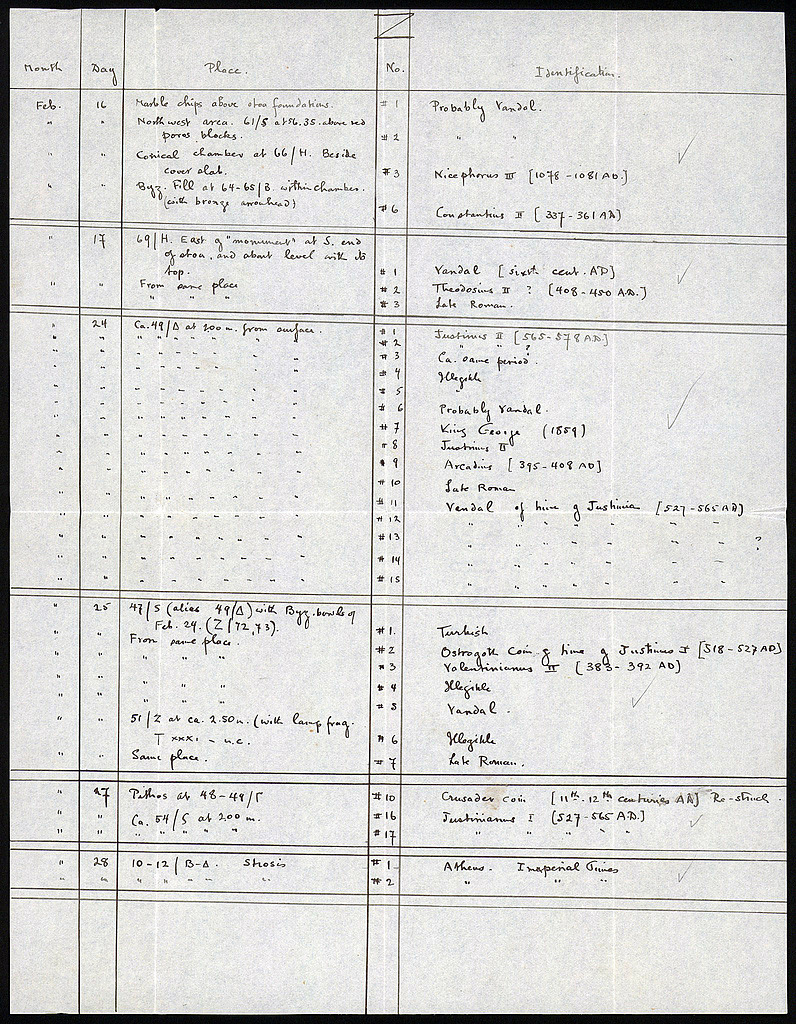 Z
Month Day Place. No. Identification.
Feb. 16 Marble chips above stoa foundations. #1 Probably Vandal.
" " Northwest area. 61/S at 56.35. above red
poros blocks. #2 " "
" " Conical chamber at 66/H. Beside
cover slab. #3 Nicephorus III [1078-1081 AD.]
" " Byz. Fill at 64-65/B. within chamber.
(with bronze arrowhead) #6 Constantius II [337-361 AD]
" 17 69/H. East of "monument" at S. end
of stoa, and about level with its
top. #1 Vandal [sixth cent. AD]
" " From same place #2 Theodosius II ? [408-450 A.D.]
" " " #3 Late Roman.
" 24 Ca. 49/Δ at 2.00 m. from surface. #1 Justinus II [565-578 A.D.]
" " " " " " " " #2 " " ?
" " " " " " " " #3 Ca. same period.
" " " " " " " " #4 Illegible
" " " " " " " " #5 "
" " " " " " " " #6 Probably Vandal.
" " " " " " " " #7 King George (1859)
" " " " " " " " #8 Justinus II
" " " " " " " " #9 Arcadius [395-408 AD]
" " " " " " " " #10 Late Roman
" " " " " " " " #11 Vandal of time of Justinian [527-565 AD]
" " " " " " " " #12 " " " " " "
" " " " " " " " #13 " " " " " " ?
" " " " " " " " #14 " " " " " "
" " " " " " " " #15 " " " " " "
" 25 47/S (alias 49/Δ) with Byz. bowls of
Feb. 24. (Z/72,73). #1. Turkish
" " From same place. #2 Ostrogoth Coin of time of Justinus I [518-527 AD]
" " " " " #3 Valentinianus II [383-392 AD]
" " " " #4 Illegible
" " " " #5 Vandal.
" " 51/Z at ca. 2.50 m. (with lamp frag.
T xxxi - n.c. #6 Illegible
" " Same place. #7 Late Roman.
" 27 Pithos at 48-49/Γ #10 Crusader coin [11th-12th centuries AD] Re-struck.
" " Ca. 54/S at 2.00 m. #16 Justinianus I [527-565 A.D.]
" " " " " " #17 " " " "
" 28 10-12/B-Δ. Strosis #1 Athens. Imperial Times
" " " " " #2 " " "